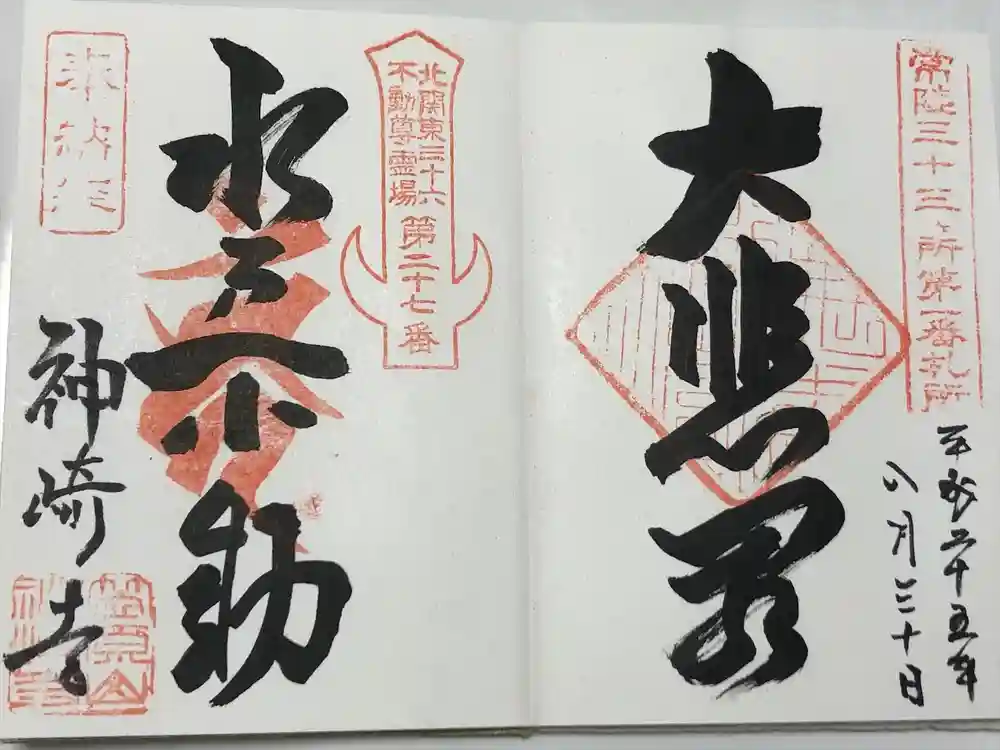 常陸三十三ヶ所第一番札所
平成二十五年
八月三十日
大悲閣
北関東三十六
不動尊霊場
第二十七番
水戸不動
奉納経
神崎寺